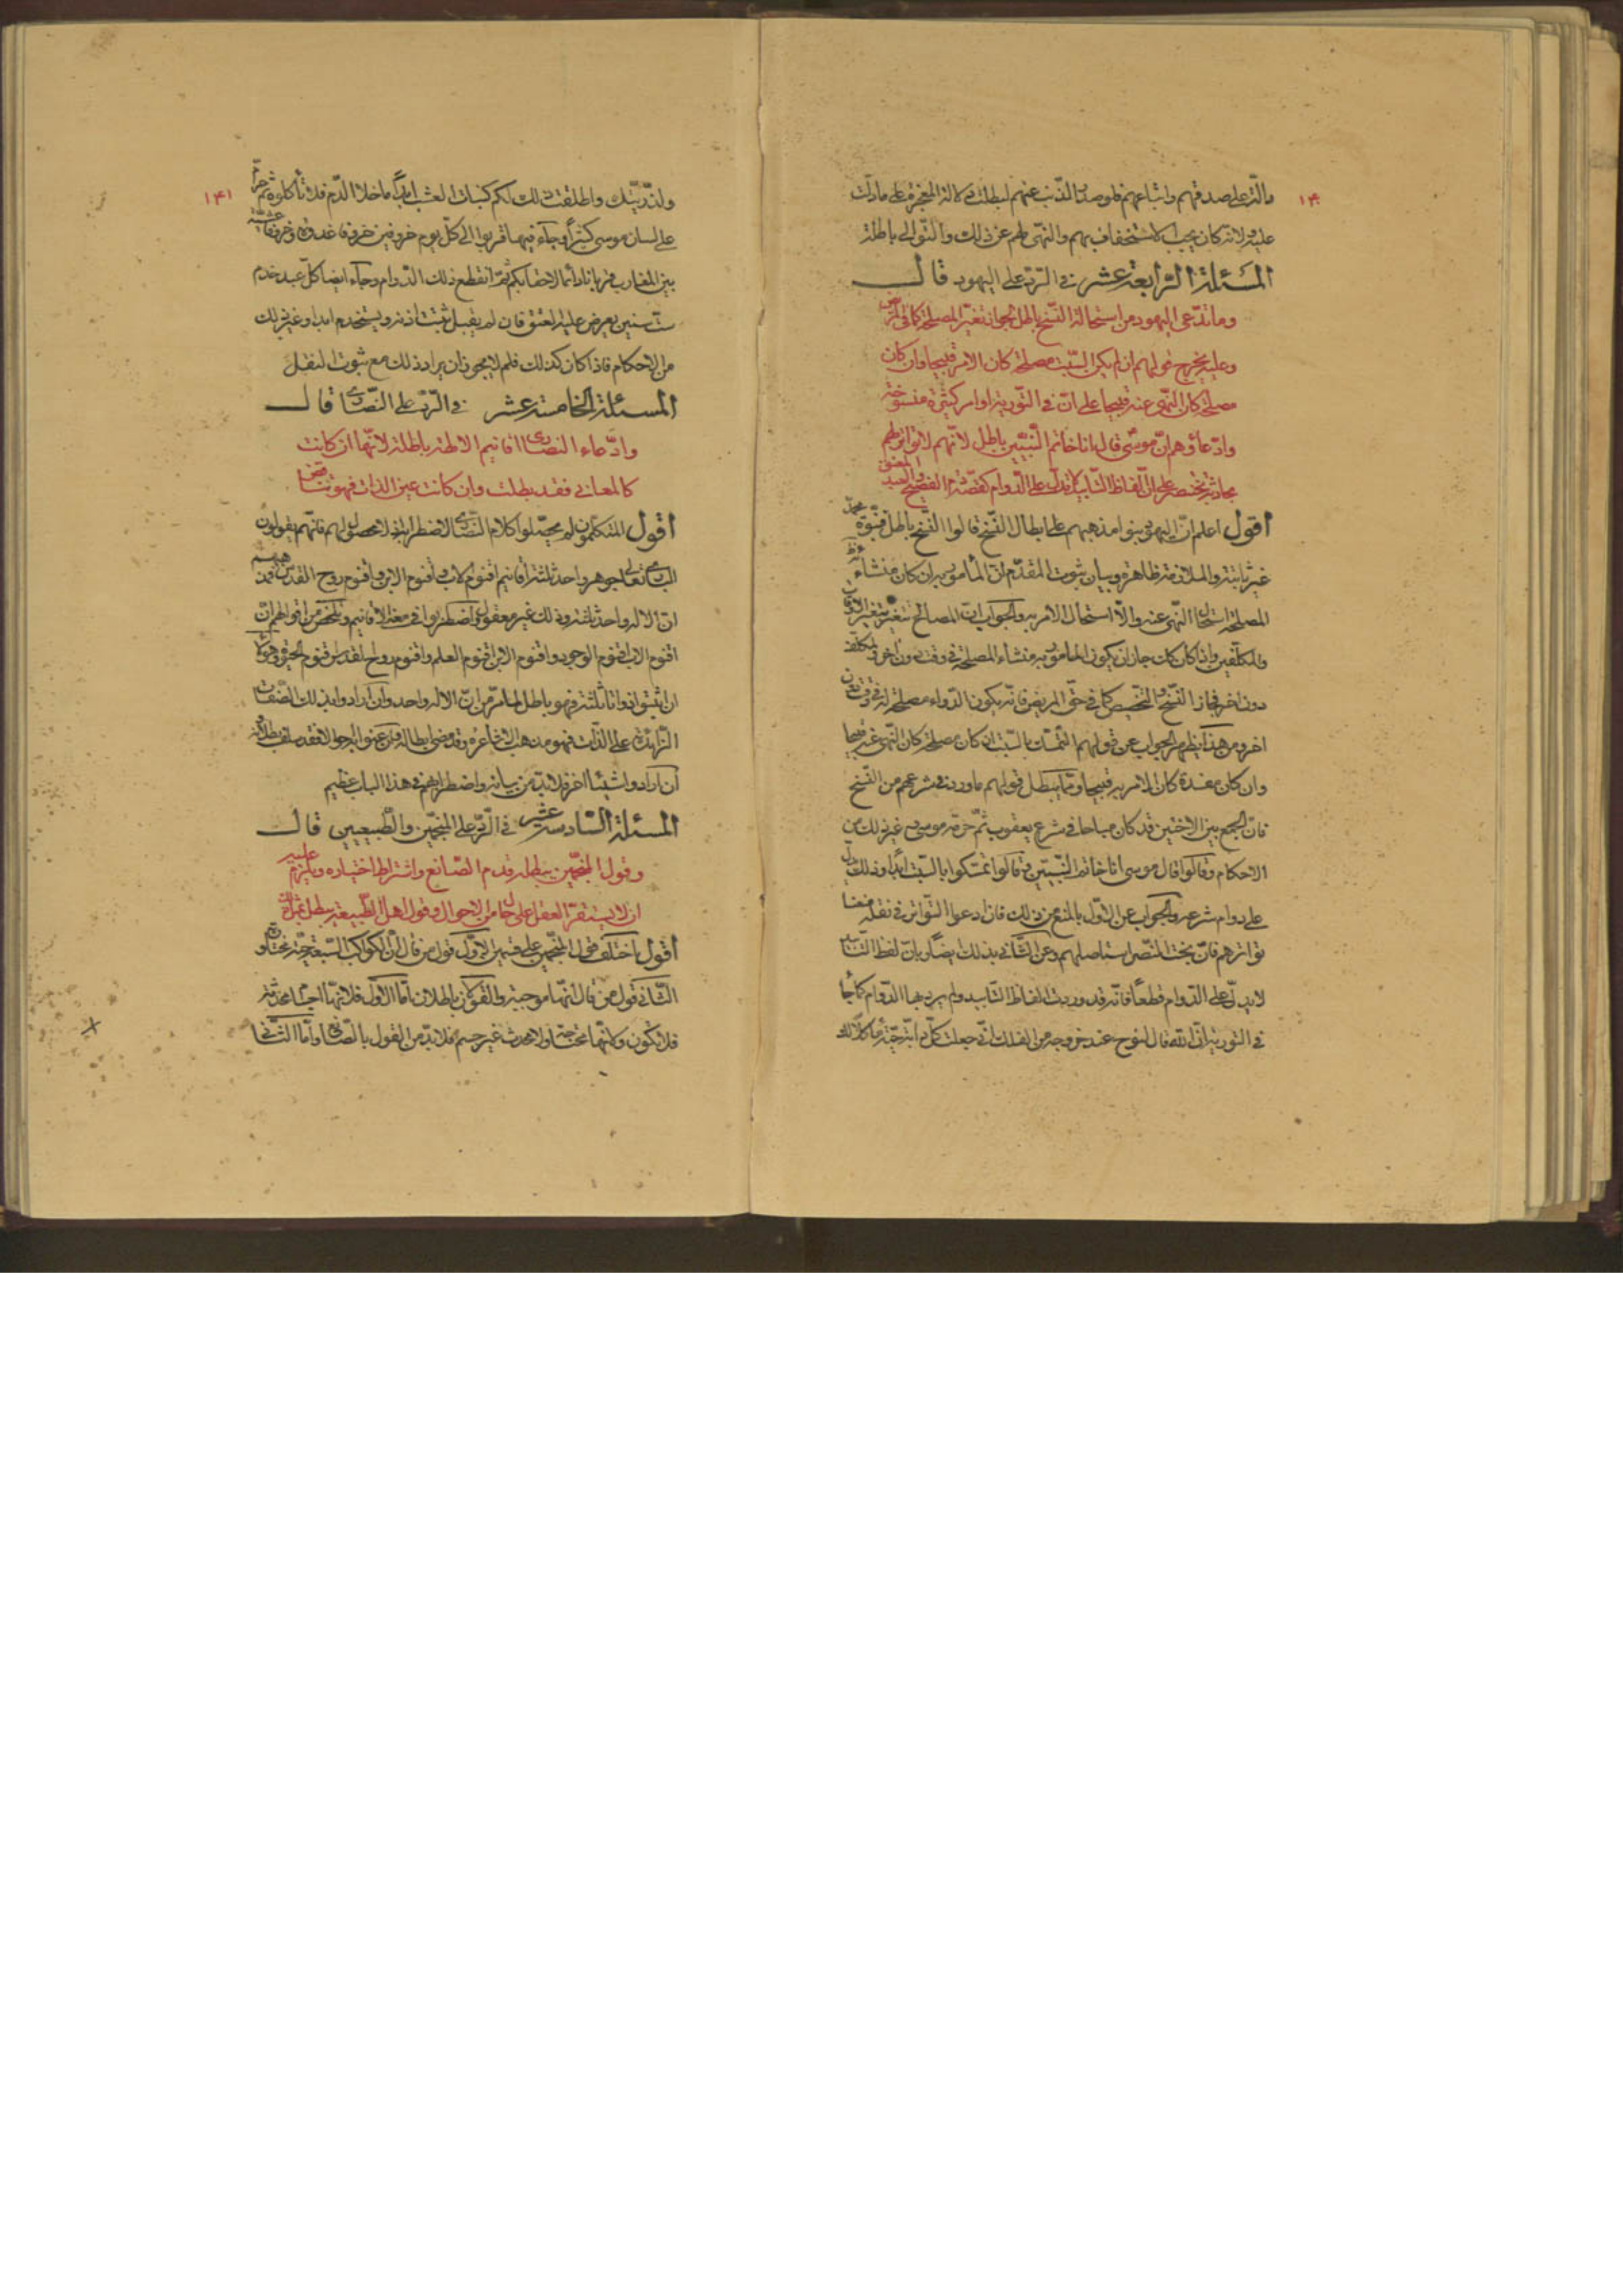 ۱۴۰
دالّة على صدقهم واتباعهم فلو صدر الذّنب عنهم لبطلت دلالة المعجزة على ما دلّت
عليه ولانّه كان يجب الاستخفاف بهم والنهى لهم عن ذلك والتّوالى باطلة
المسئلة الرّابعة عشر فى الرّدّ على اليهود قال
وما تدّعى اليهود من استحالة النّسخ باطل لجواز تغيّر المصلحة كما فى المرض
وعليه يخرج قولهم ان لم يكن السّبت مصلحة كان الامر قبيحا وان كان
مصلحة كان النّهى عنه قبيحا على انّ فى التّورية اوامر كثيرة منسوخة
وادّعاؤهم انّ موسى قال انا خاتم النّبيّين باطل لانّهم لا تواتر لهم
بحادثة بختنصر على انّ الفاظ التّابيد لا تدلّ على الدّوام كقصّة دم الفصح والعبد المعتق
اقول اعلم انّ اليهود بنوا مذهبهم على ابطال النّسخ قالوا النّسخ باطل فنبوّة محمّد
غير ثابتة والملازمة ظاهرة وبيان ثبوت المقدّم انّ المأمور به ان كان منشاء
المصلحة استحال النّهى عنه والّا استحال الامر به والجواب انّ المصالح تتغيّر بتغيّر الاوقات
والمكلّفين واذا كان كك جاز ان يكون المامور به منشاء المصلحة فى وقت دون اخر ولمكلّف
دون اخر فجاز النّسخ والتّخصيص كما فى حقّ المريض فانّه يكون الدّواء مصلحة له فى وقت دون
اخر ومن هذا يظهر الجواب عن قولهم التّمسّك بالسّبت ان كان مصلحة كان النّهى غير قبيحا
وان كان مفسدة كان الامر به قبيحا وممّا يبطل قولهم ما ورد فى شرعهم من النّسخ
فانّ الجمع بين الاختين قد كان مباحا فى شرع يعقوب ثمّ حرّمه موسى ع غير ذلك من
الاحكام وقالوا قال موسى انا خاتم النّبيّين وقالوا تمسّكوا بالسّبت ابدا وذلك يدلّ
على دوام شرعه والجواب عن الاوّل بالمنع من ذلك فان ادعوا التّواتر فى نقله منعنا
تواترهم فانّ بخت النّصر استاصلهم وعن الثّانى بذلك ايضا وبانّ لفظ التّابيد
لا يدلّ على الدّوام قطعا فانّه قد وردت الفاظ التّابيد ولم يرد بها الدّوام كما جا
فى التّورية انّ الله قال لنوح عند خروجه من الفلك انّى جعلت كلّ دابّة حيّة مأكلا لك
۱۴۱
ولذرّيّتك واطلقت ذلك لكم كنبات العشب ابدا ما خلا الدّم فلا تأكلوه ثم حرّم
على لسان موسى كثيرا وجاء فيها قربوا الى كلّ يوم خروفين خروفا غدوة وخروفا عشيّة
بين المغارب قربانا دائما لاحقابكم ثمّ انقطع ذلك الدّوام وجاء ايضا كلّ عبد خدم
ستّ سنين يعرض عليه العتق فان لم يقبل ثقبت اذنه ويستخدم ابدا وغير ذلك
من الاحكام فاذا كان كذلك فلم لا يجوز ان يراد ذلك مع ثبوت النقل
المسئلة الخامسة عشر فى الرّدّ على النّصارى قال
وادّعاء النصارى اقانيم الاله باطلة لانّها ان كانت
كالمعانى فقد بطلت وان كانت عين الذات فهو تناقض
اقول المتكلّمون لم يحصّلوا كلام النّصارى لاضطرابه اذ لا محصول لهم فانّهم يقولون
البارى تعالى جوهر واحد ثلثة اقانيم اقنوم الاب واقنوم الابن واقنوم روح القدس
انّ الاله واحد ثلثة وذلك غير معقول واضطربوا فى معنى الاقانيم وتلخّص من اقوالهم انّ
اقنوم الاب اقنوم الوجود واقنوم الابن اقنوم العلم واقنوم روح القدس اقنوم الحيوة وهؤلاء
ان اثبتوا ذواتا ثلثة فهو باطل لما مرّ من انّ الاله واحد وان ارادوا بذلك الصّفات
الزّائدة على الذّات فهو مذهب الاشاعرة وقد مضى ابطاله وان عنوا به احوالا فقد سلف بطلانه
ان ارادوا شيئا اخر فلا بدّ من بيانه واضطرابهم فى هذا الباب عظيم
المسئلة السّادسة عشر فى الرّدّ على المنجّمين والطّبيعيين قال
وقول المنجّمين يبطله قدم الصّانع واشتراط اختياره ويلزم عليه
ان لا يستقرّ العقل على حال من الاحوال وقول اهل الطّبيعة يبطل بمثل ذلك
اقول اختلف قول المنجّمين على قسمين الاوّل قول من قال انّ الكواكب السّبعة حيّة مختارة و
الثّانى قول من قال انّها موجبة والقولان باطلان امّا الاوّل فلانّها اجسام محدثة
فلا تكون ولانّها محتاجة ولا محدث غير جسم فلا بدّ من القول بالصّانع وامّا الثّانى